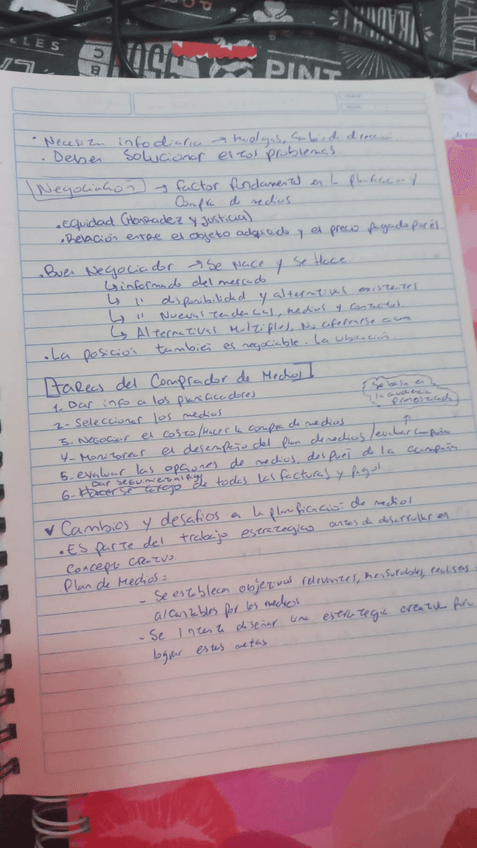 PINT
• Necesitan info diaria → Huelgas, Cambio de
• Deben solucionar estos problemas
Negociación → Factor fundamental en la planificación y
Compra de medios
• Equidad (Honradez y justicia)
• Relación entre el objeto adoptado y el precio pagado por él
• Buen Negociador → Se Nace y Se Hace
↳ informado del mercado
↳ " disponibilidad y alternativas existentes
↳ " Nuevas tendencias, medios y contactos
↳ Alternativas Multiples, No aferrarse a un
• La posición también es negociable. La ubicación
Tareas del Comprador de Medios
1. Dar info a los planificadores
Se basa en la audiencia
2- Seleccionar los medios
3- Negociar el costo/Hacer la compra de medios
4- Monitorear el desempeño del plan de medios/evaluar
5. evaluar las opciones de medios, después de la campaña
Dar seguimiento
6- Hacerse cargo de todas las facturas y pagos
✓ Cambios y desafios en la planificación de medios
• ES parte del trabajo estrategico antes de desarrollar el
Concepto creativo
Plan de Medios:
- Se establecen objetivos relevantes, mensurables, realistas
alcanzables por los medios
- Se intenta diseñar una estrategia creativa para
lograr estas metas